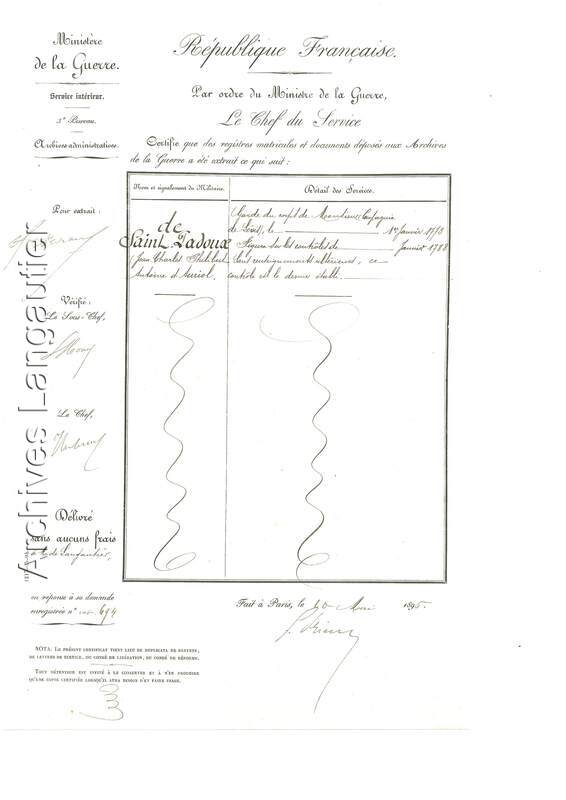 Ministère
de la Guerre.
Service intérieur.
5e Bureau.
Archives administratives.
République Française.
Par ordre du Ministre de la Guerre,
Le Chef du Service
Certifie que des registres matricules et documents déposés aux Archives
de la Guerre a été extrait ce qui suit:
Nom et signalement du Militaire.
Détail des Services.
de
Saint Padoux
Jean Charles Philibert
Antoine d'Auriol.
Garde du corps de Monsieur Compagnie
de 1er Janvier 1773
Figure sur les contrôles de Janvier 1788
Sans renseignements ultérieurs, ce
contrôle est le dernier établi.
Pour extrait:
Vérifié:
Le Sous-Chef,
Le Chef,
Délivré
sans aucuns frais
à de Langautier,
en réponse à sa demande
enregistrée n° 694
Fait à Paris, le 20 Mai 1895.
NOTA. Le présent certificat tient lieu de duplicata de brevets,
de lettres de service, du congé de libération, du congé de réforme.
Tout détenteur est invité à le conserver et à n'en produire
qu'une copie certifiée lorsqu'il aura besoin d'en faire usage.
Archives Langautier